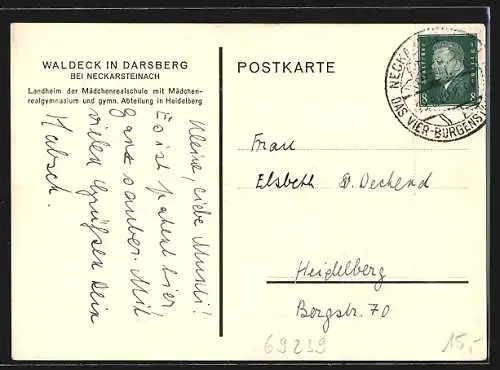 WALDECK IN DARSBERG
BEI NECKARSTEINACH
Landheim der Mädchenrealschule mit Mädchen-
realgymnasium und gymn. Abteilung in Heidelberg
POSTKARTE
NECKA
DAS VIER-BURGENS
8 8
Meine, liebe Mutti!
Es ist patent hier
Ganz sauber. Mit
vielen Grüßen Dein
Hatsch.
Frau
Elsbeth v. Dechend
Heidelberg
Bergstr. 70
69239
15,-